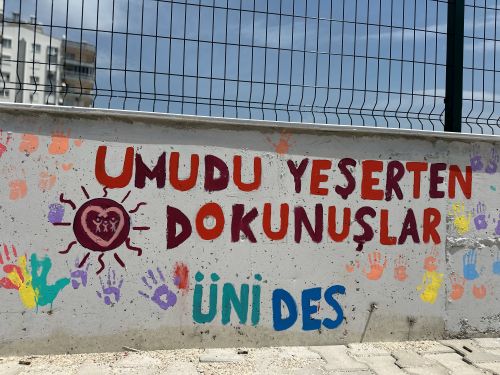 UMUDU YEŞERTEN
DOKUNUŞLAR
ÜNİ DES